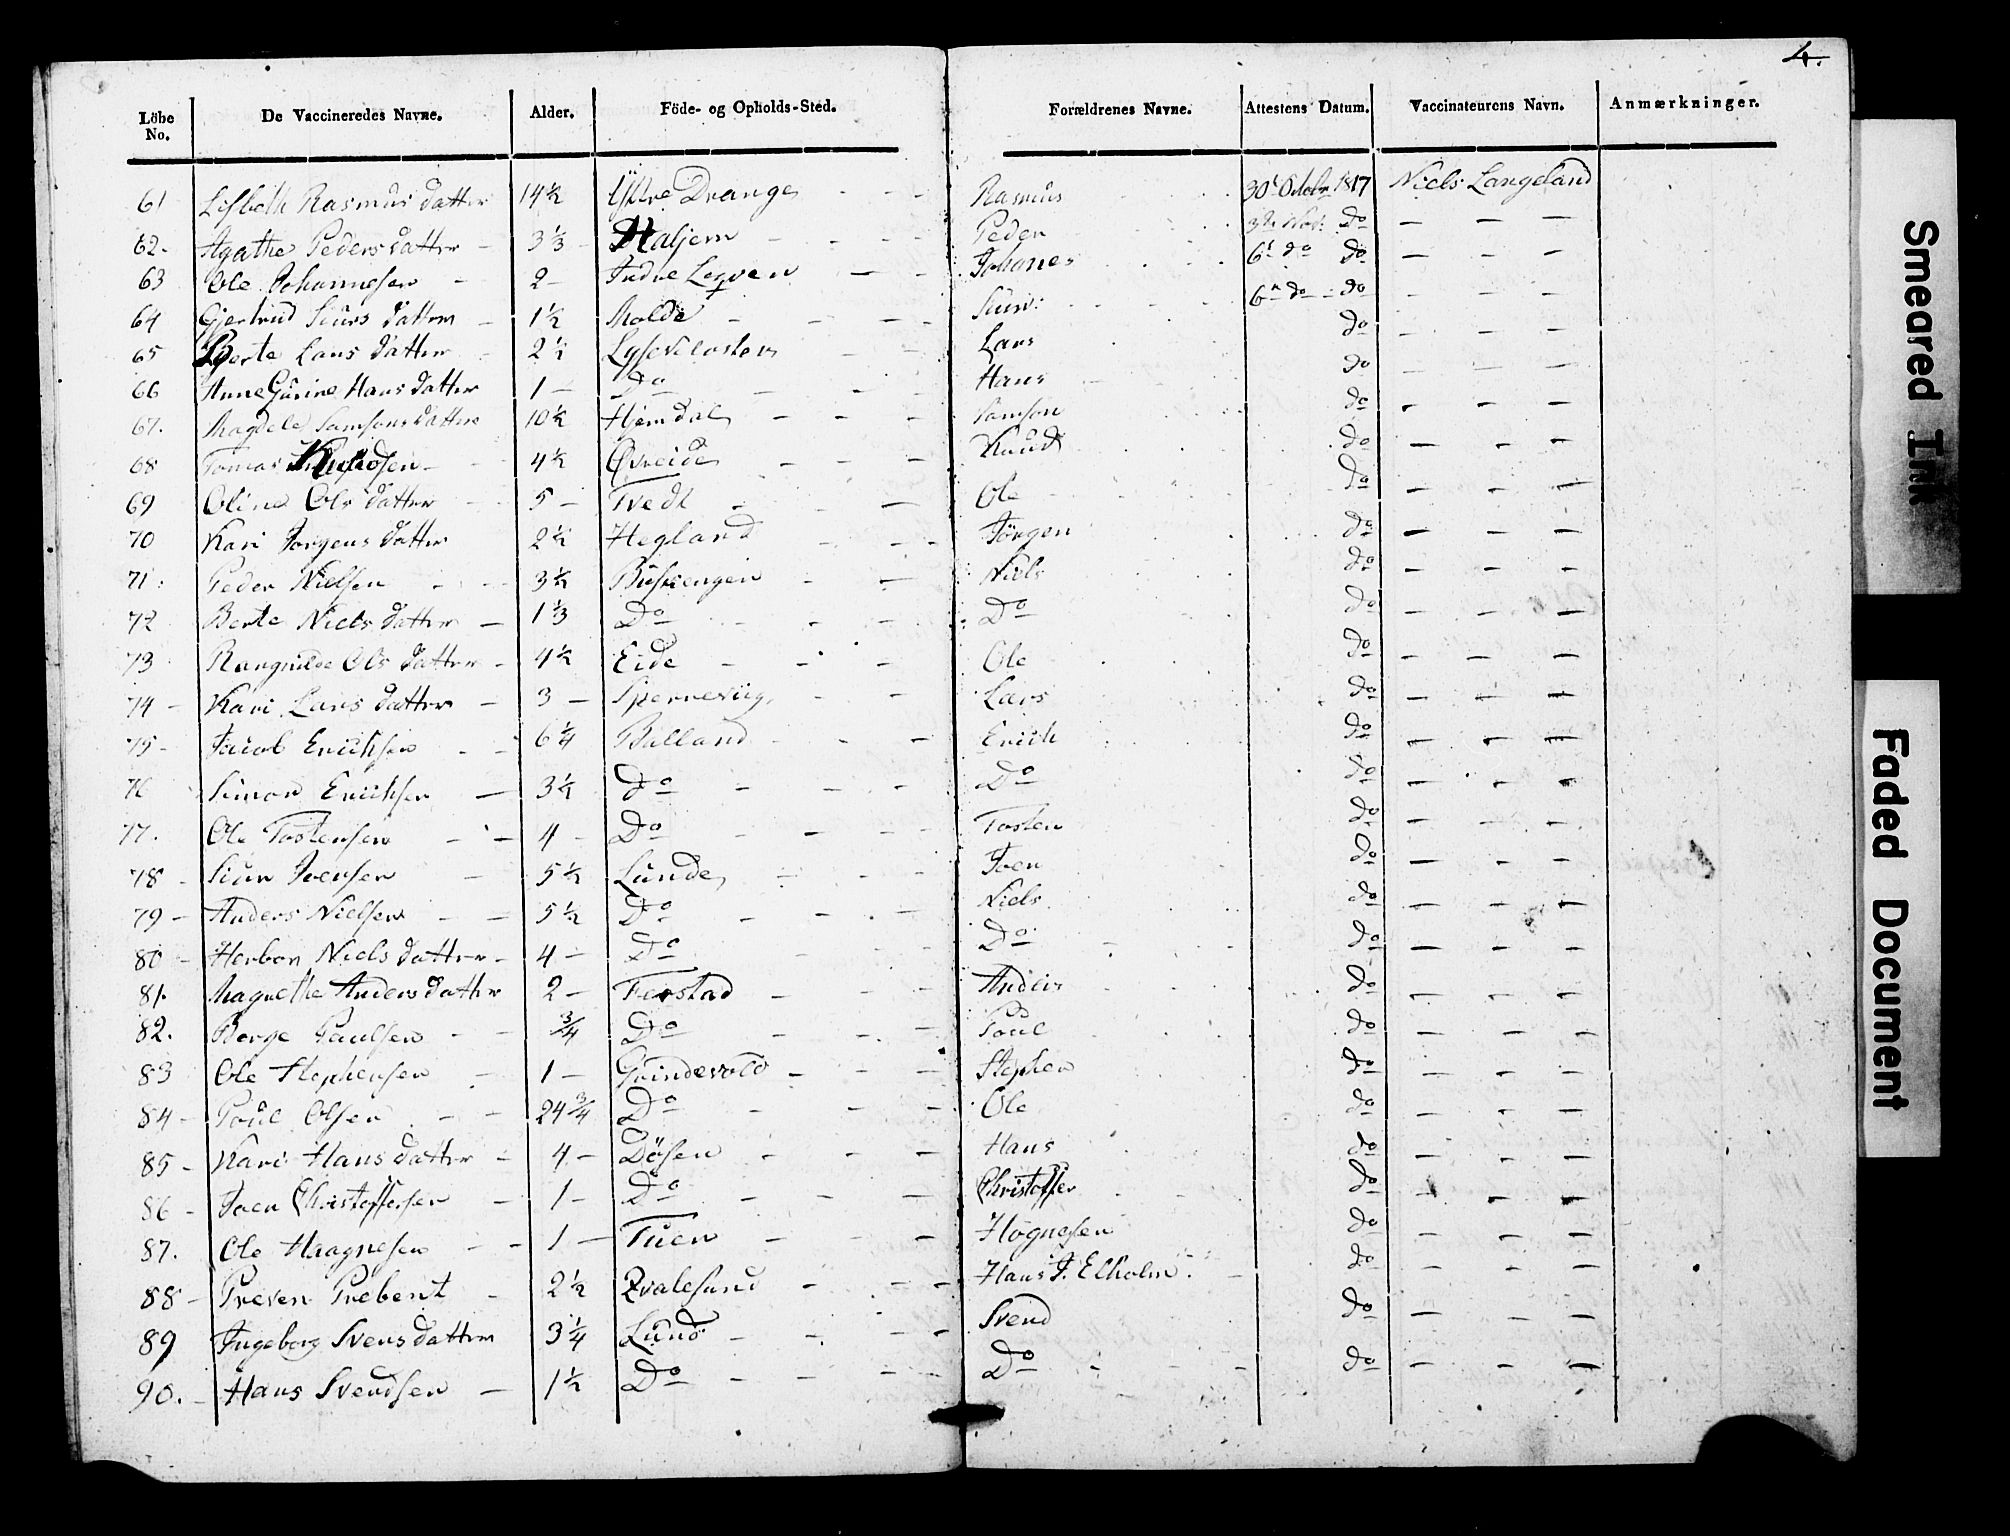 4.
Löbe No. De Vaccineredes Navne. Alder. Föde- og Opholds-Sted. Forældrenes Navne. Attestens Datum. Vaccinateurens Navn. Anmærkninger.
61 Lisbeth Rasmus datter 14½ Ystre Drange - - Rasmus 30t Octobr 1817 Niels Langeland
62. Agathe Peders datter - 3⅓ - Haljem - - - Peder 3de Nov: do — — —
63 Ole Johannesen - 2 - Indre Lepven — - Johanes 6t do do - — -
64 Gjertrud Siurs datter - 1½ Molde - — — Siur: 6te do - do - — —
65 Berte Lars datter - 2½ Lysekloster - Lars do - — —
66 Anne Gurine Hans datter 1 - Do — — - Hans do - — —
67. Magdele Samsons datter 10½ Hjemdal - — - Samson do - — —
68 Tomas Knudsen - - 4½ Øvreide - — - Knud do — - —
69 Oline Ols datter - 5 - Tvedt - - — Ole do — — —
70 Kari Jørgens datter 2½ Hegland - — Jörgen do — — —
71. Peder Nielsen - - 3½ Buskengen - — Niels do - — —
72 Berte Niels datter — 1⅓ Do - - — Do do — — —
73 Ragnilde Ols datter - 4½ Eide - - — Ole do — — —
74 - Kari Lars datter - 3 — Speernevig - - Lars do — — —
75 - Jacob Erichsen - - 6¼ Balland - - — Erich do — - —
76 Simon Erichsen — 3½ do - - - Do do — - —
77. Ole Tostensen - - 4 - Do - — - Tosten do — - —
78 - Siur Joensen - 5½ Lunde - - - Joen do - — —
79 - Anders Nielsen - - 5½ Do - - — Niels do — - —
80 - Herbor Niels datter - 4 - Do - - - Do do — - —
81. Magnethe Anders datter 2 - Ferstad - - - Anders do — — —
82. Børge Paulsen - - ¾ Do - - - Poul do — - —
83 Ole Stephensen - 1 - Grindevold - - - Stephen do — — —
84 - Poul Olsen - - 24¾ Do - - — Ole do — - —
85 - Kari Hans datter - 4 - Døsen - - - Hans do — - —
86 - Joen Christoffersen - 1 - Do - - — Christoffer do — — —
87. Ole Haagnesen - - 1 — Tuen - - - Høgnesen do — — —
88 - Preven Prebent - 2½ Qvalesund - - - Hans J. Elholm. do — - —
89 Ingeborg Svens datter 3¼ Lund - - - Svend do — — —
90. - Hans Svendsen — 1½ Do - - - Do do — - —
Smeared Ink
Faded Document